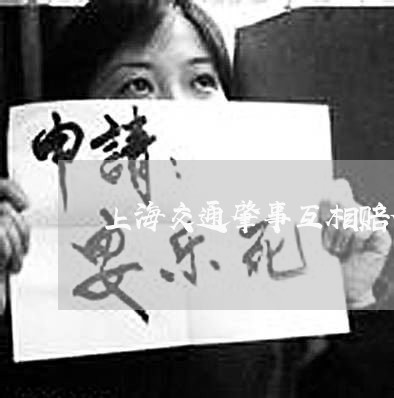 申請：
上海交通肇事互相赔
安乐死